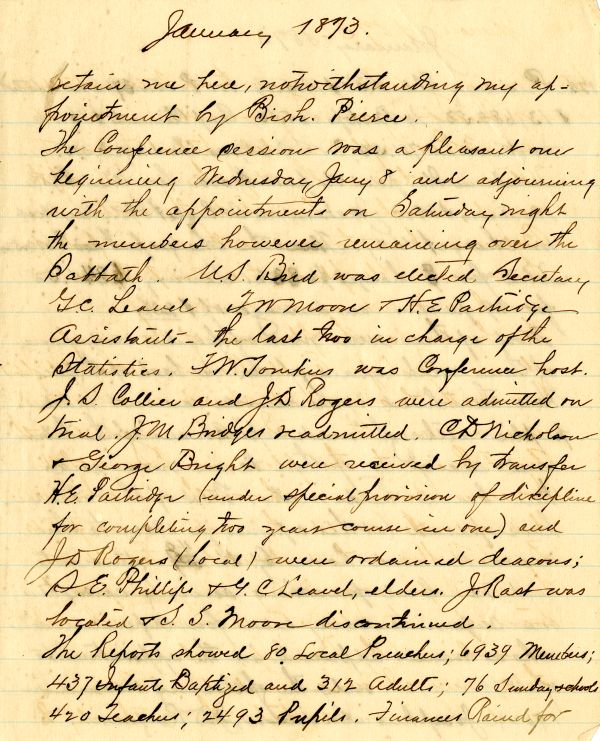 January 1873.
retain me here, notwithstanding my ap-
pointment by Bish. Pierce.
The Conference session was a pleasant one
beginning Wednesday Jany 8 and adjourning
with the appointments on Saturday night
the members however remaining over the
Sabbath. U.S. Bird was elected Secretary
G.C. Leavel F W Moon & H.E Partridge
Assistants - the last two in charge of the
Statistics. F.W. Tomkies was Conference host.
J. S. Collier and J.D Rogers were admitted on
trial. J.M Bridges readmitted. C D Nicholson
& George Bright were received by transfer
H.E. Partridge (under special provision of discipline
for completing two years course in one) and
J D Rogers (local) were ordained deacons;
S. E. Phillips & G. C Leavel, elders. J. Rast was
located & S. S. Moore discontinued.
The Reports showed 80 Local Preachers; 6939 Members;
437 Infants Baptized and 312 Adults; 76 Sunday schools
420 Teachers; 2493 Pupils. Finances Raised for